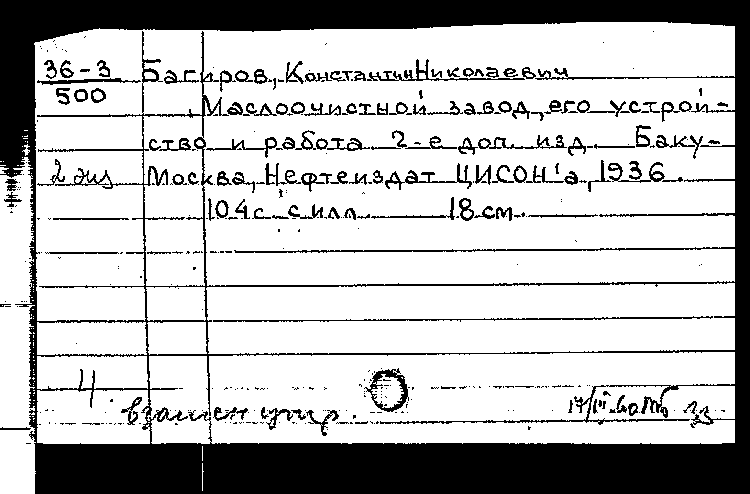 36-3 Багиров, Константин Николаевич
500
Маслоочистной завод, его устрой-
ство и работа 2-е доп. изд. Баку-
2 экз Москва, Нефтеиздат ЦИСОН'а, 1936.
104 с. с илл. 18 см.
4
взамен утр.
17/III-60